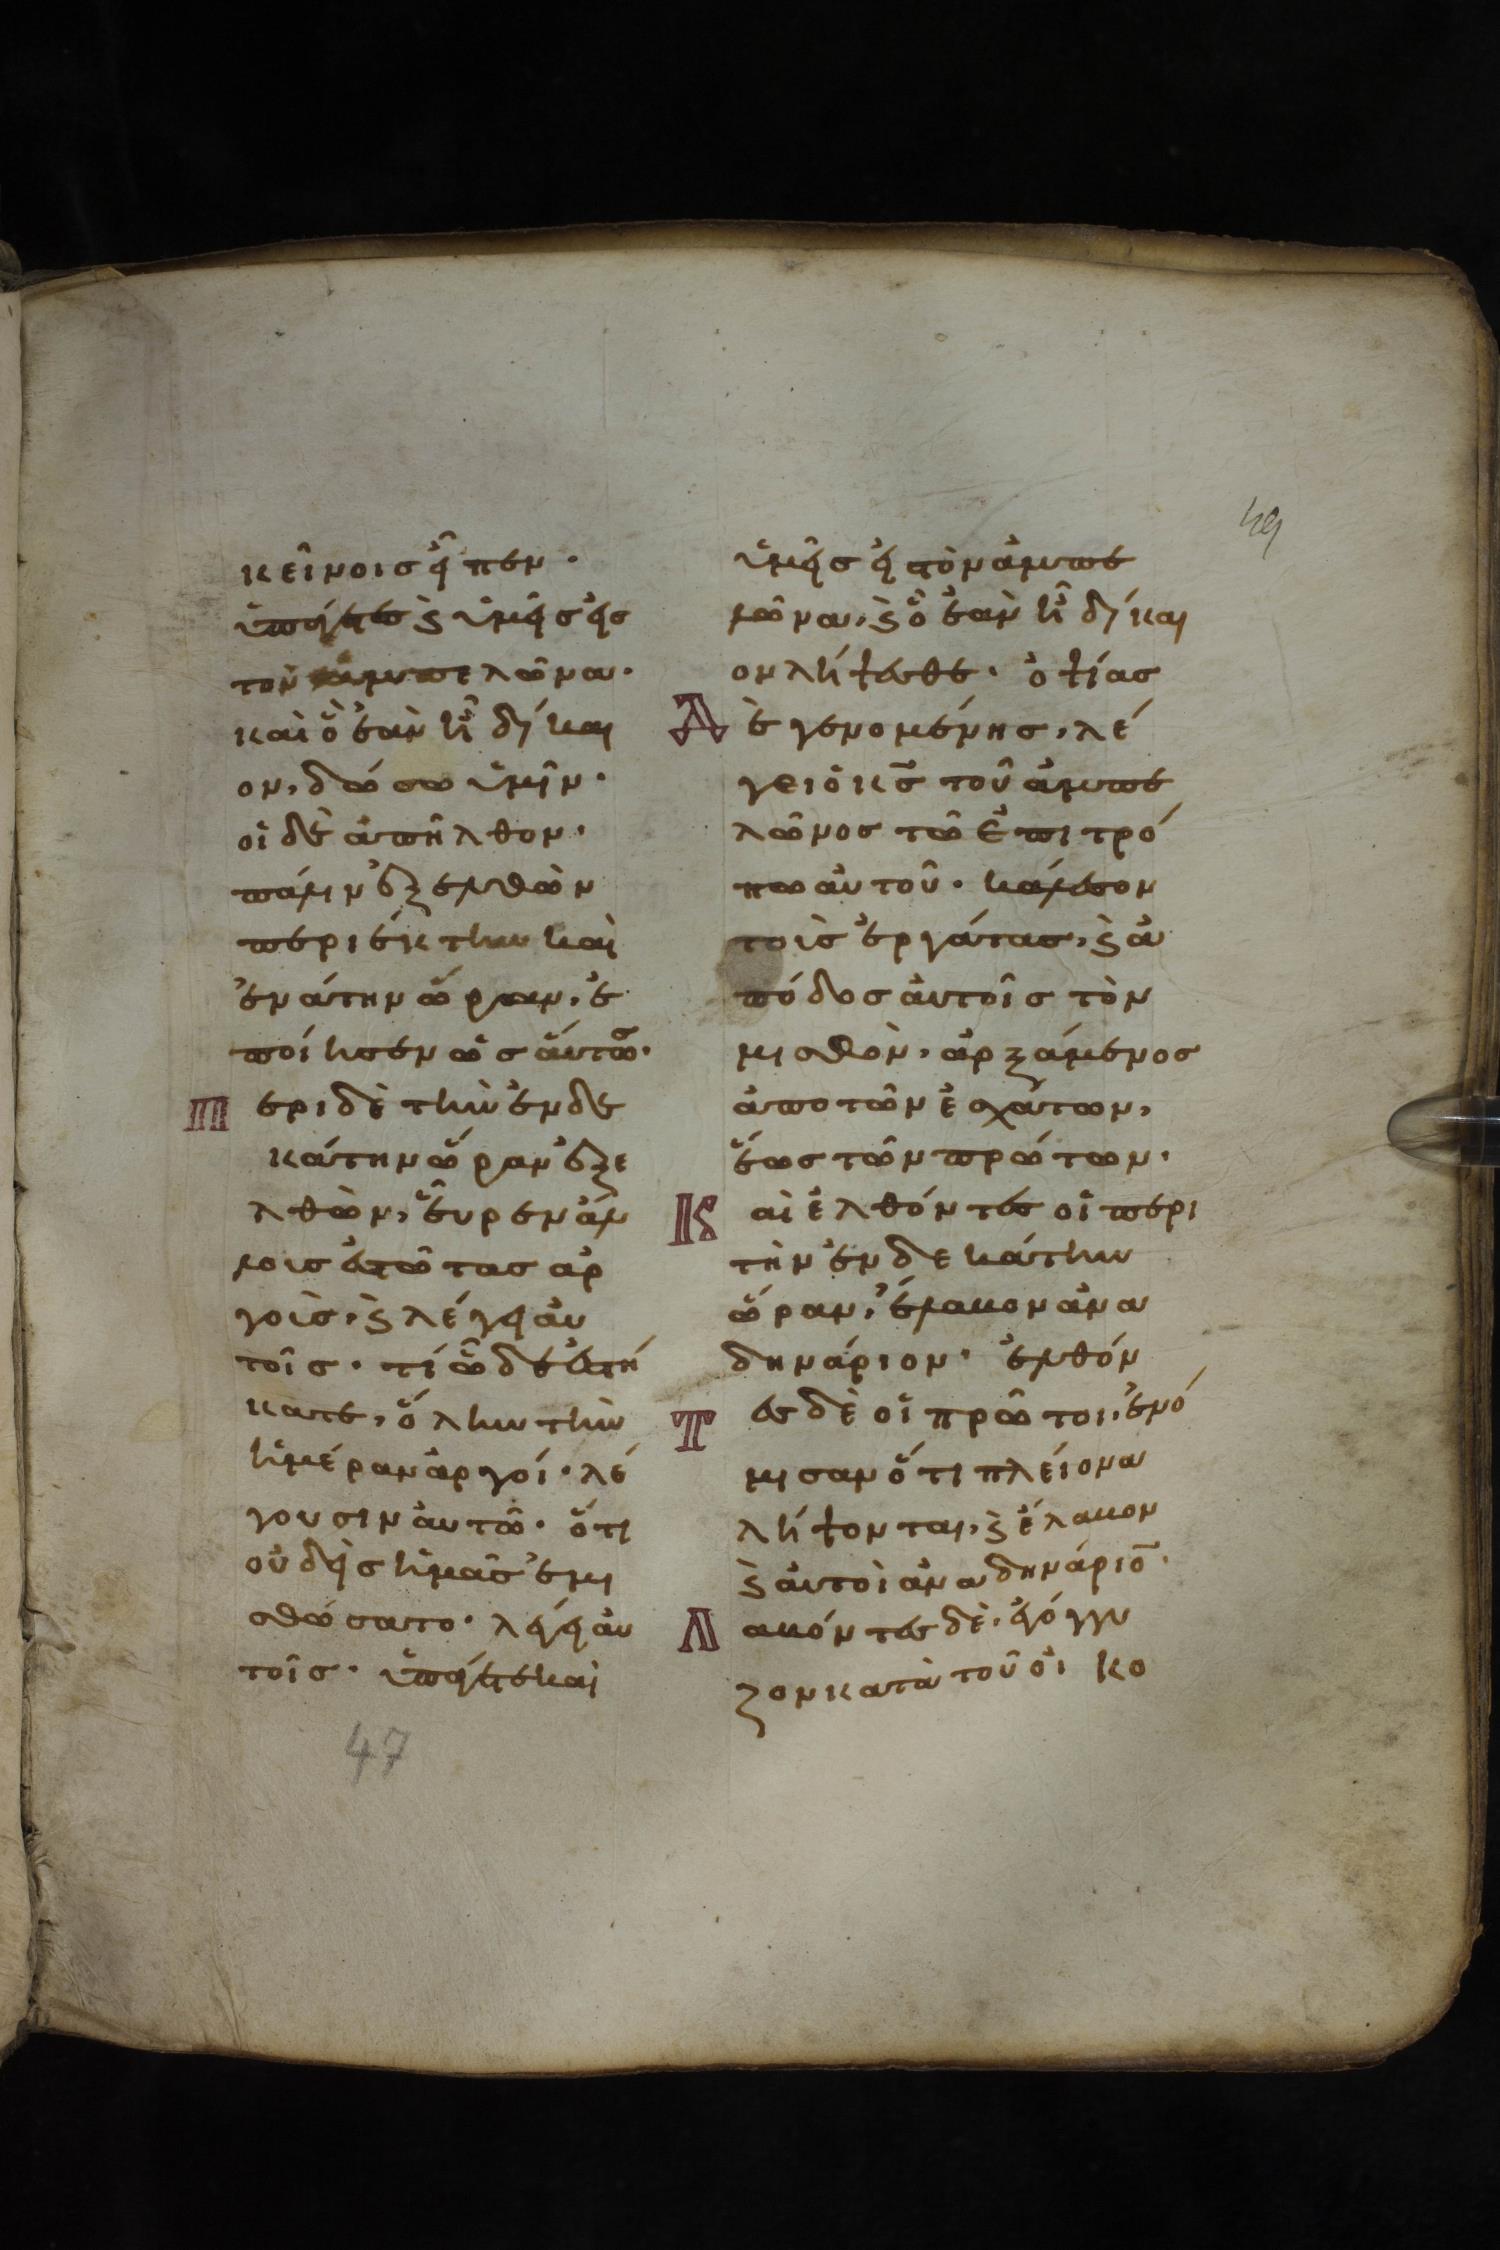 49
κεῖνοις εἶπεν·
ὑπάγετε ϗ ὑμεῖς εἰς
τὸν ἀμπελῶνα·
καὶ ὃ ἐὰν ἦ δίκαι
ον, δώσω ὑμῖν·
οἱ δὲ ἀπῆλθον·
πάλιν ἐξελθὼν
περὶ ἕκτην καὶ
ἐνάτην ὥραν, ἐ
ποίησεν ὡσάυτω̅ς·
Περὶ δὲ τὴν ἑνδε
κάτην ὥραν ἐξε
λθὼν, εὗρεν ἄλ
λοις ἑστῶτας ἀρ
γοὶς, ϗ λέγει ἀυ
τοῖς· τί ὧδε ἑστή
κατε, ὅλην τὴν
ἡμέραν ἀργοί· λέ
γουσιν ἀυτῶ· ὅτι
οὐδεὶς ἡμᾶς ἐμι
σθώσατο· λέγει ἀυ
τοῖς· ὑπάγετε καὶ
ὑμεῖς εἰς τὸν ἀμπε
λῶνα, ϗ ὃ ἐὰν ἦ δίκαι
ον λήψεσθε· ὀψίας
Δὲ γενομένης, λέ
γει ὁ κ̅ς τοῦ ἀμπε
λῶνος τῶ ἐπιτρό
πω ἀυτοῦ· κάλεσον
τοὶς ἐργάτας, ϗ ἀ
πόδος ἀυτοῖς τὸν
μισθὸν, ἀρξάμενος
ἀπο τῶν ἐσχάτων,
ἕως τῶν πρώτων·
Καὶ ἐλθόντες οἱ περι
τὴν ἑνδεκάτην
ὥραν, ἔλαβον ἀνα
δηνάριον· ἐλθόν
Τες δὲ οἱ πρῶτοι, ἐνό
μισαν ὅτι πλείονα
λήψονται, ϗ ἔλαβον
ϗ ἀυτοὶ ἀνα δηνάριο̅·
Λαβόντες δὲ· ἐγόγγυ
ζον κατὰ τοῦ οἰκο
47